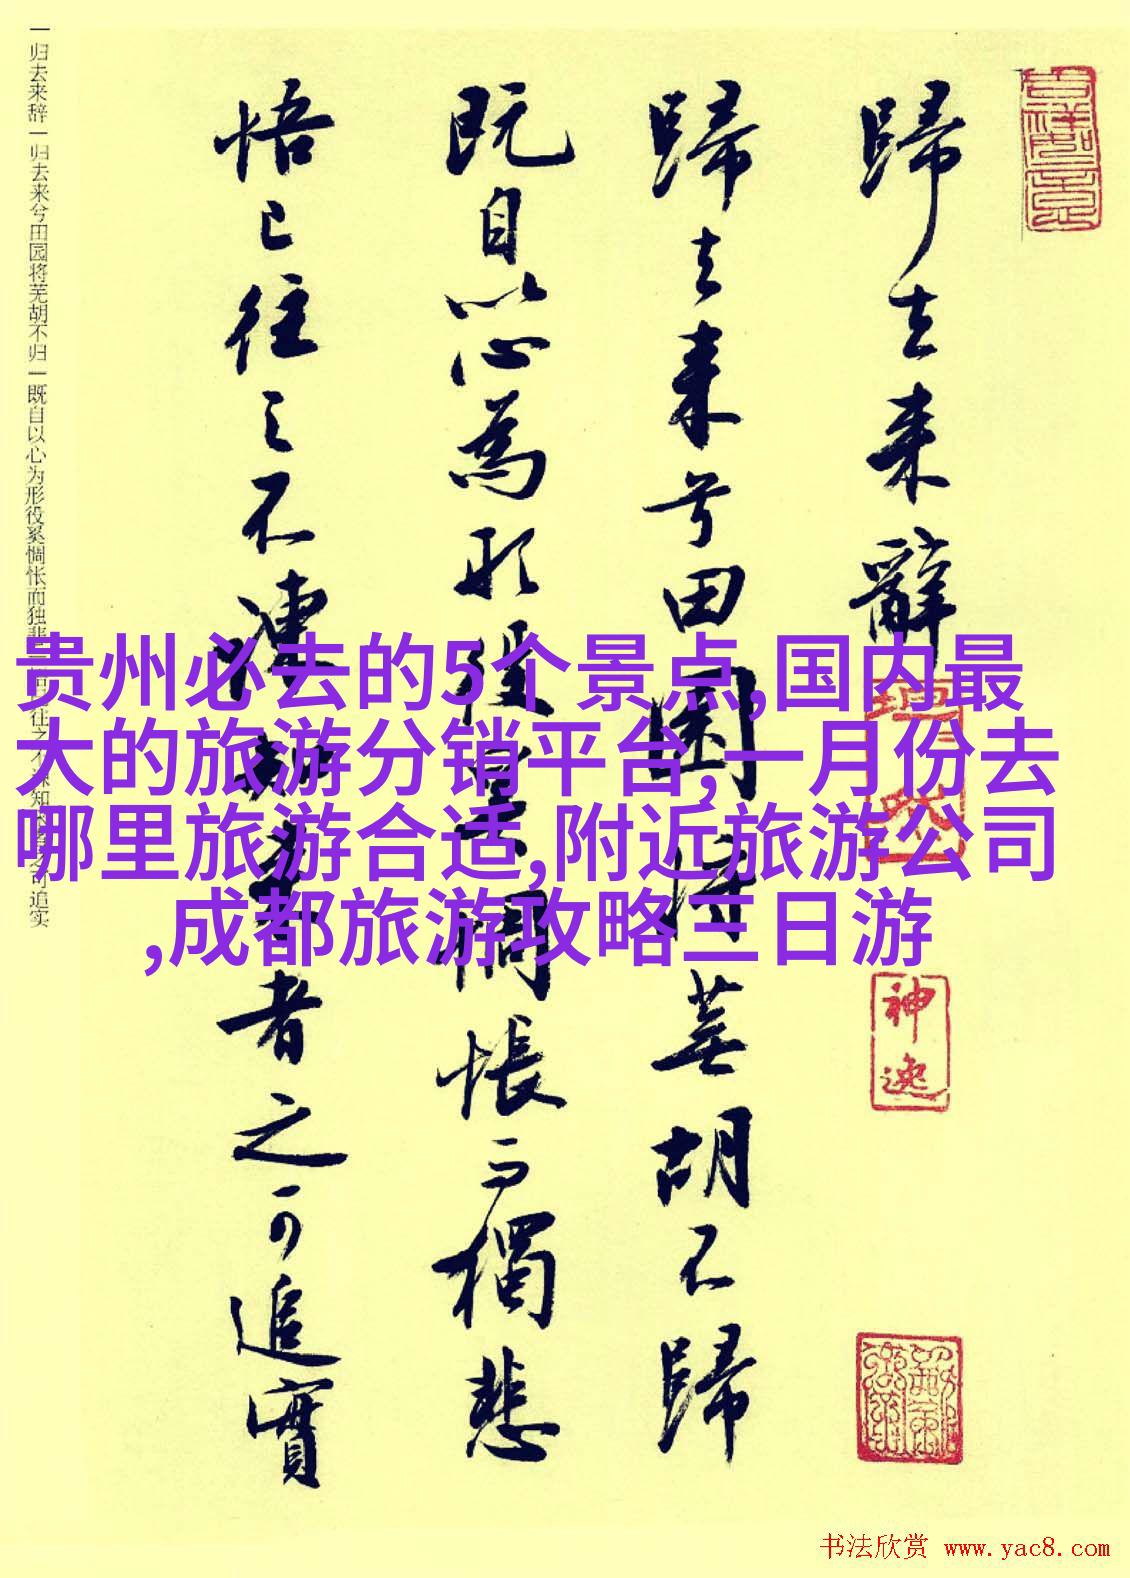 歸去来辭
歸去来兮田園将蕪胡不歸
既自以心為形役奚惆悵而獨悲
悟已往之不諫知来者之可追實
一归去来辞一归去来兮田园将芜胡不归一既自以心为形役奚惆怅而独悲一悟已往之不谏知来者之可追实
贵州必去的5个景点,国内最
大的旅游分销平台,一月份去
哪里旅游合适,附近旅游公司
,成都旅游攻略三日游
神逸
书法欣赏 www.yac8.com